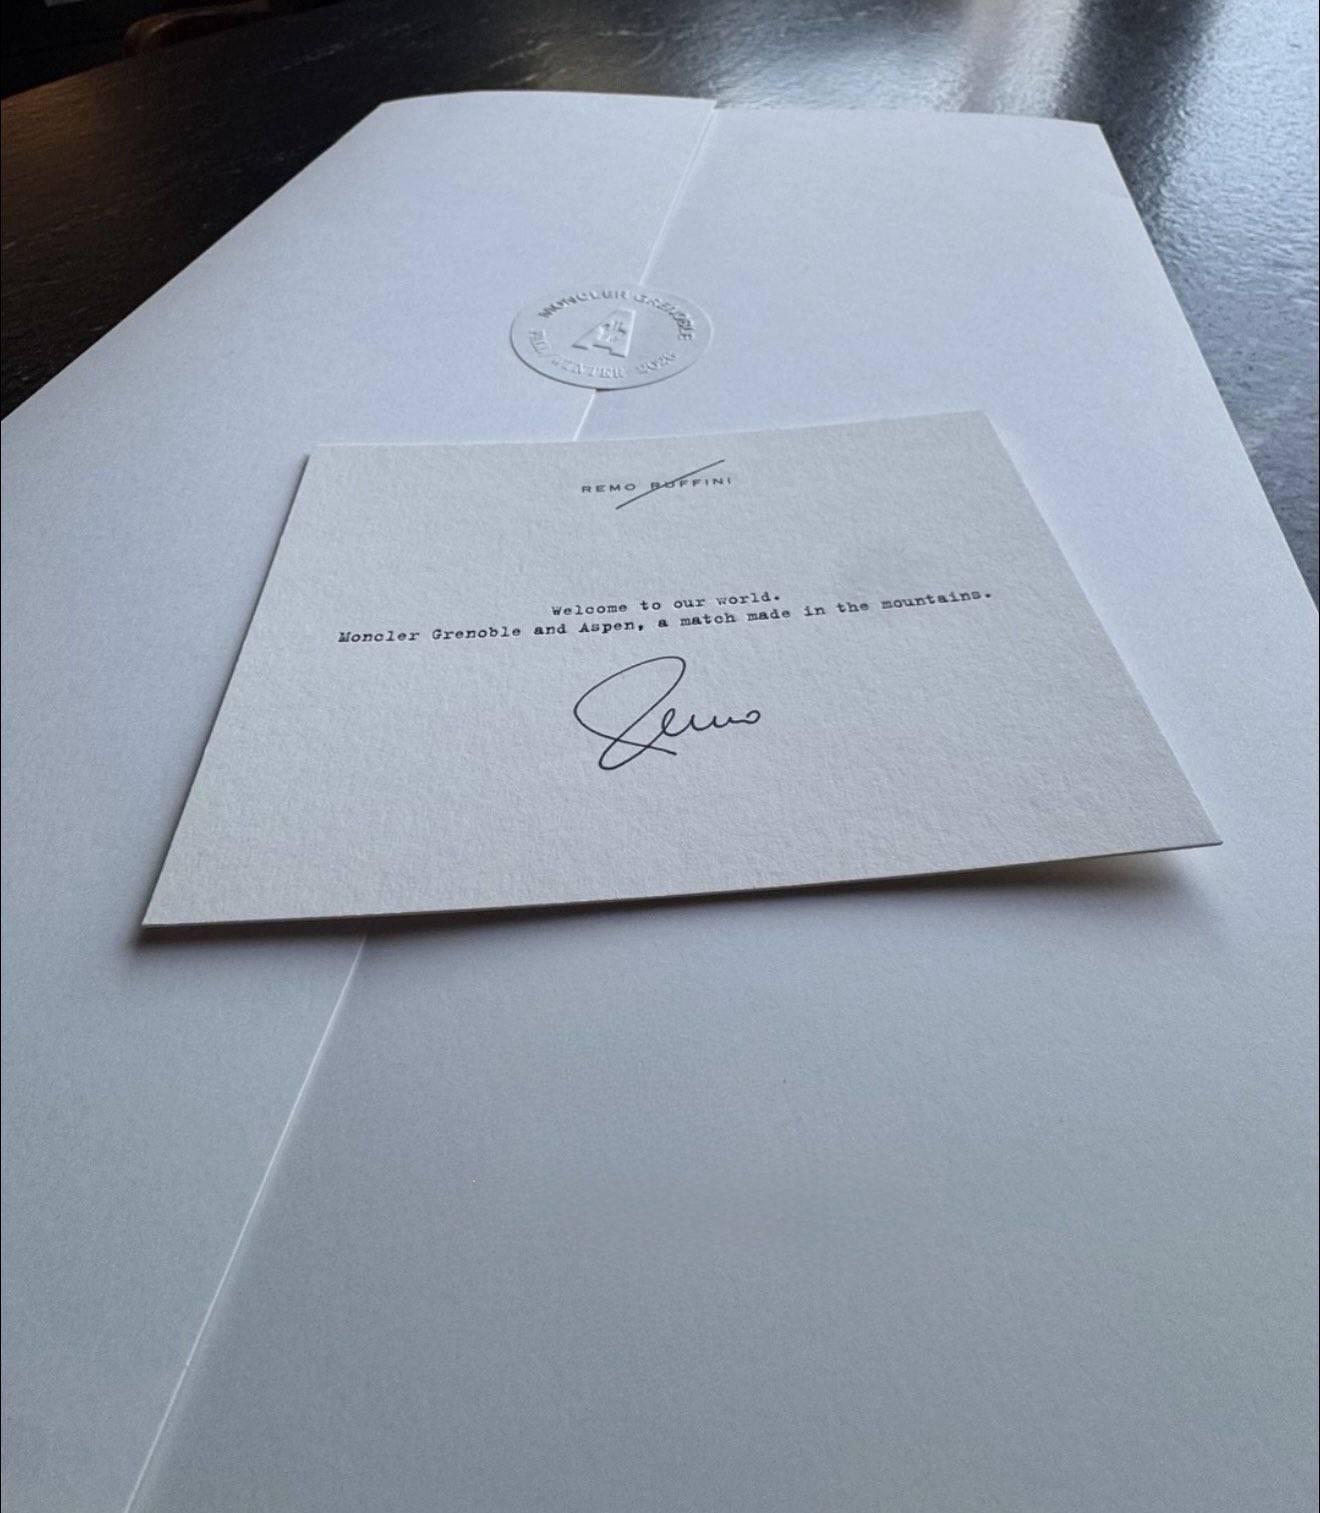 MONCLER GRENOBLE
A
FALL/WINTER 2026
REMO RUFFINI
Welcome to our world.
Moncler Grenoble and Aspen, a match made in the mountains.
Remo